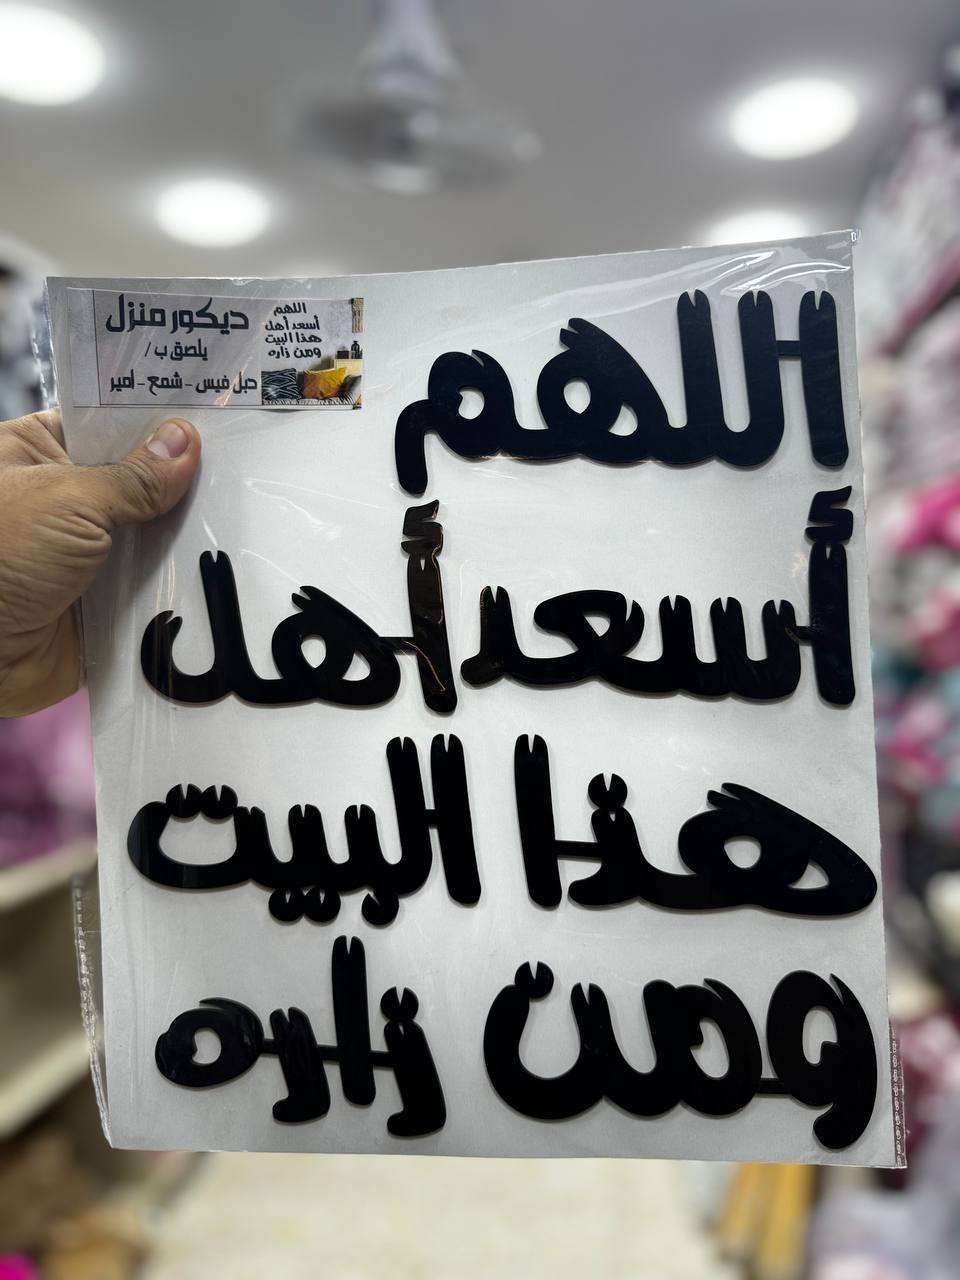 ديكور منزل
يلصق ب /
دبل فيس - شمع - امير
اللهم
أسعد أهل
هذا البيت
ومن زاره
اللهم
أسعد أهل
هذا البيت
ومن زاره